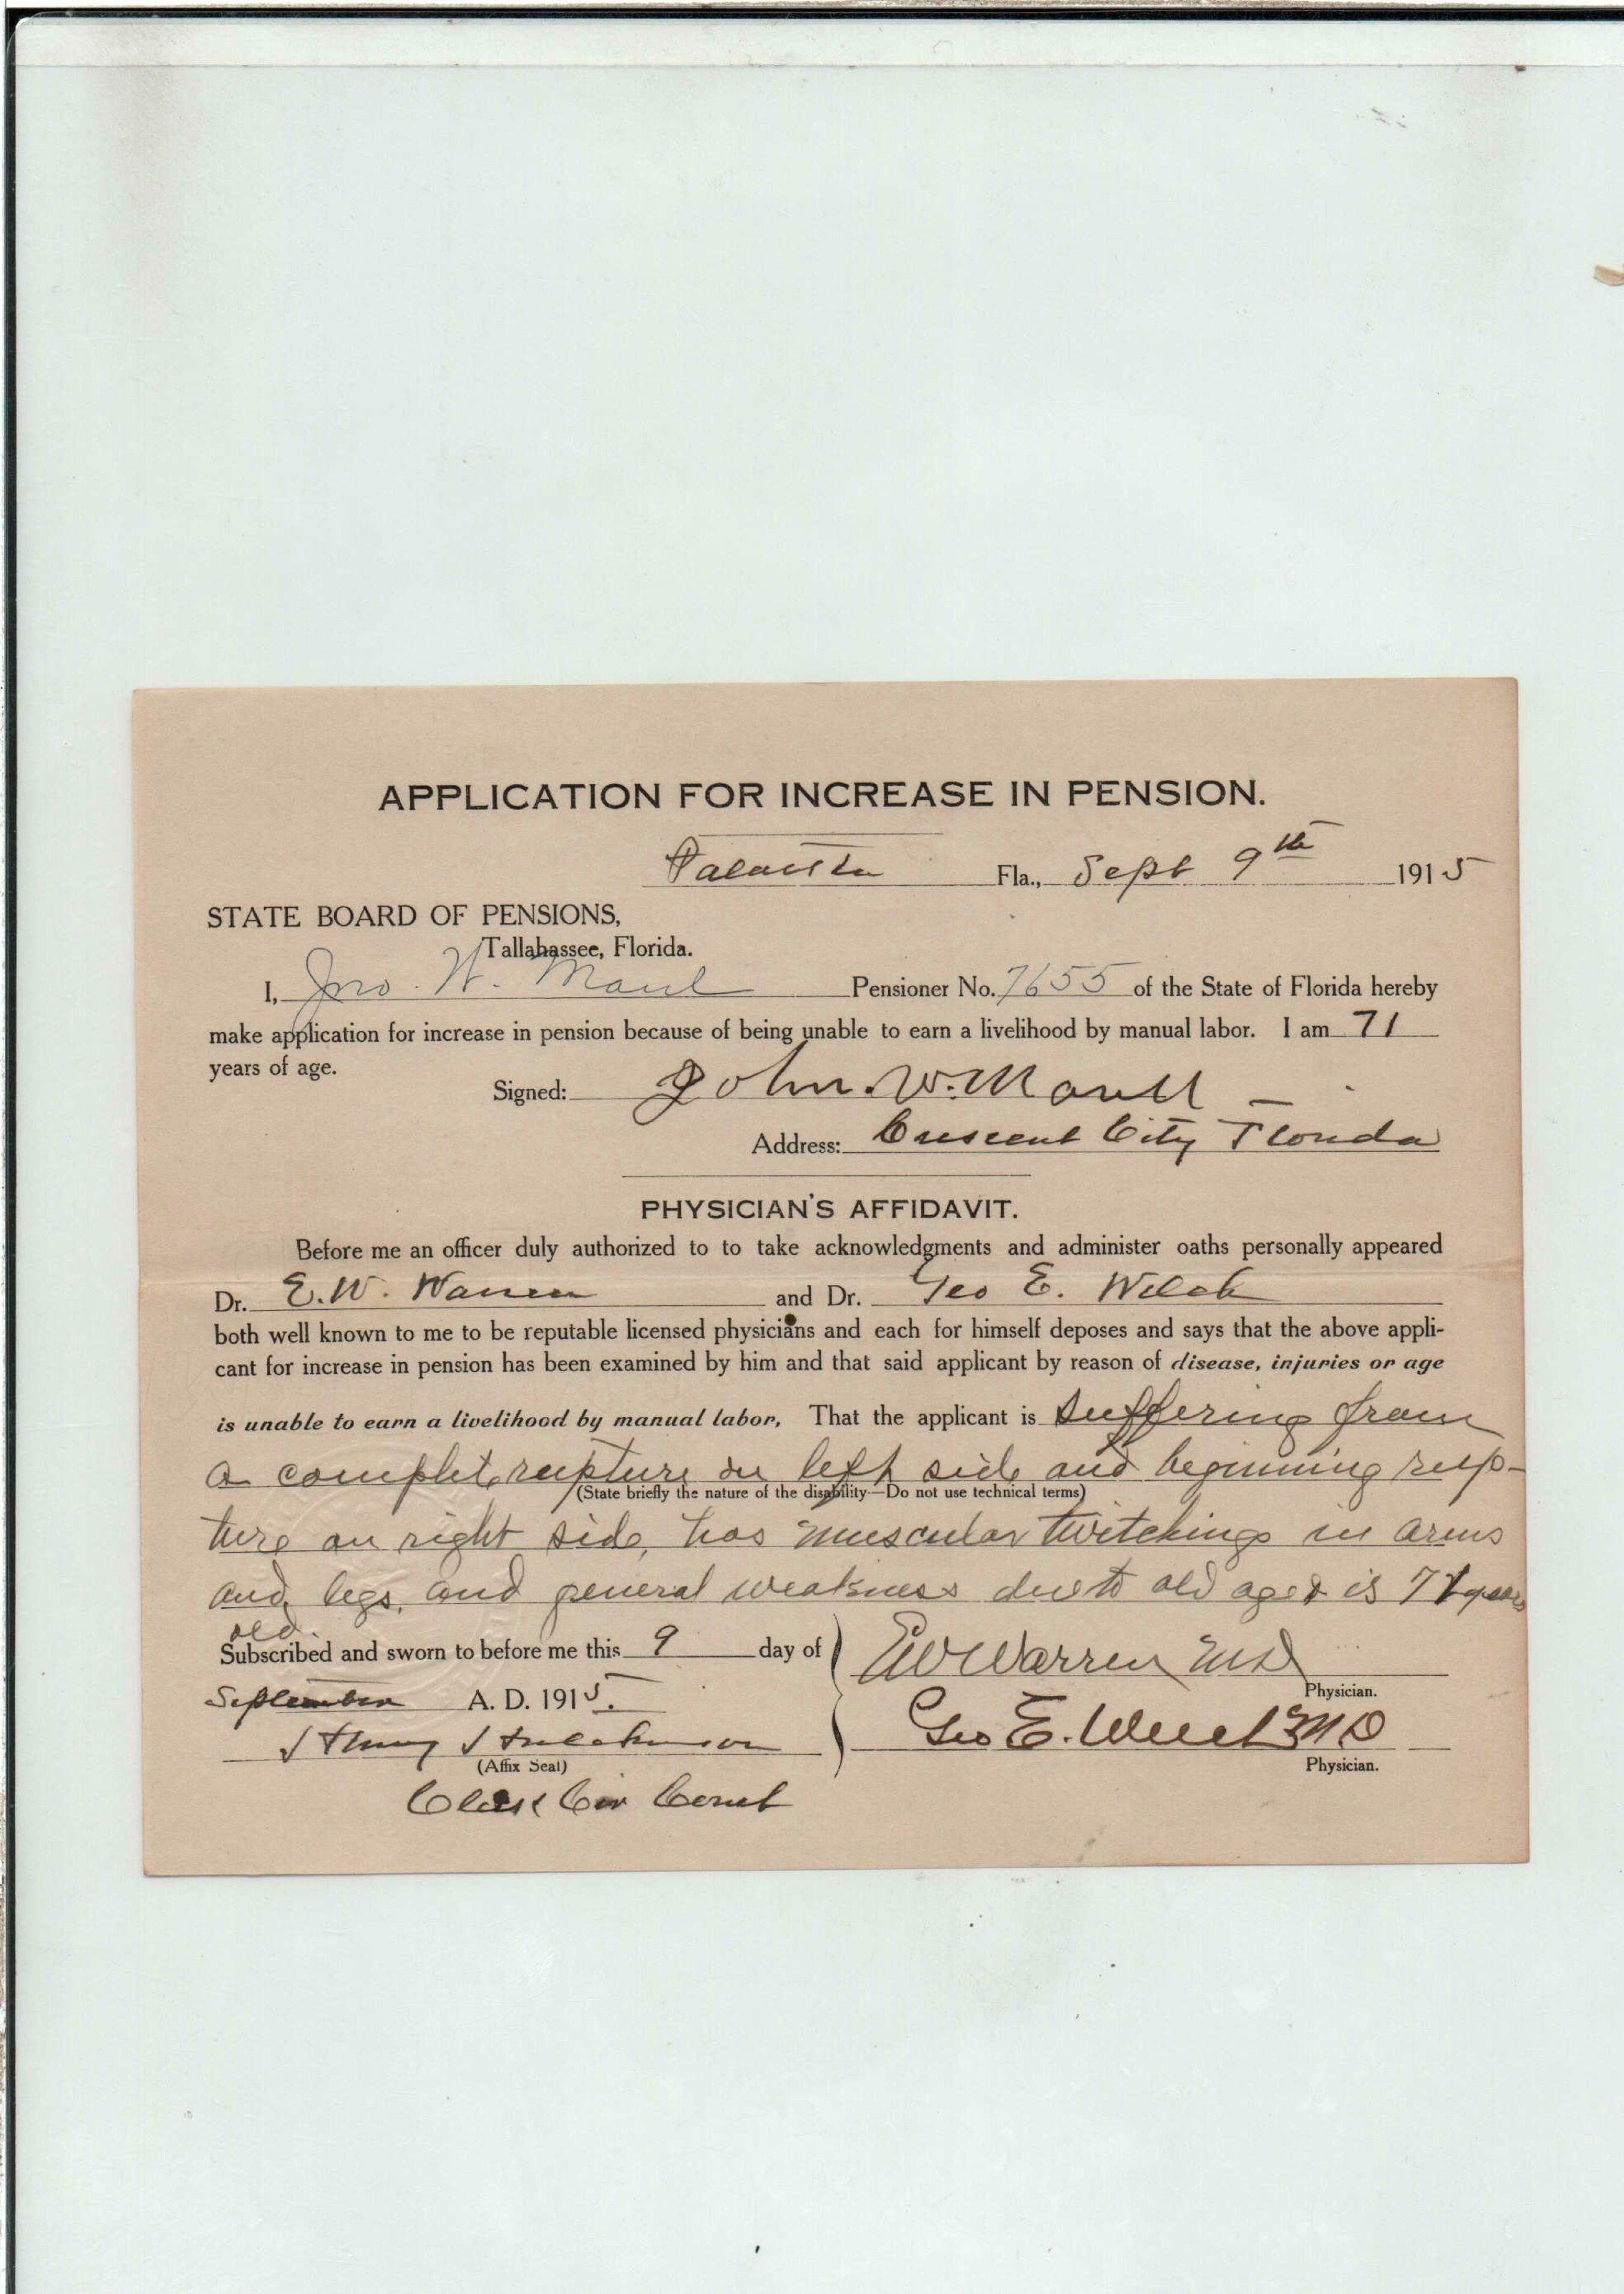 APPLICATION FOR INCREASE IN PENSION.
Palatka Fla., Sept 9th 1915
STATE BOARD OF PENSIONS,
Tallahassee, Florida.
I, Jno. W. Maul Pensioner No. 7655 of the State of Florida hereby
make application for increase in pension because of being unable to earn a livelihood by manual labor. I am 71
years of age.
Signed: John. W. Maull
Address: Crescent City Florida
PHYSICIAN'S AFFIDAVIT.
Before me an officer duly authorized to to take acknowledgments and administer oaths personally appeared
Dr. E. W. Warren and Dr. Geo E. Welch
both well known to me to be reputable licensed physicians and each for himself deposes and says that the above appli-
cant for increase in pension has been examined by him and that said applicant by reason of disease, injuries or age
is unable to earn a livelihood by manual labor, That the applicant is suffering from
a complet rupture on left side and beginning rup-
(State briefly the nature of the disability—Do not use technical terms)
ture on right side, has muscular twitchings in arms
and legs, and general weakness due to old age & is 71 years
old.
Subscribed and sworn to before me this 9 day of
September A. D. 1915.
EW Warren MD
Physician.
Henry Hutchinson
(Affix Seal)
Geo E. Welch MD
Physician.
Clerk Cir Court